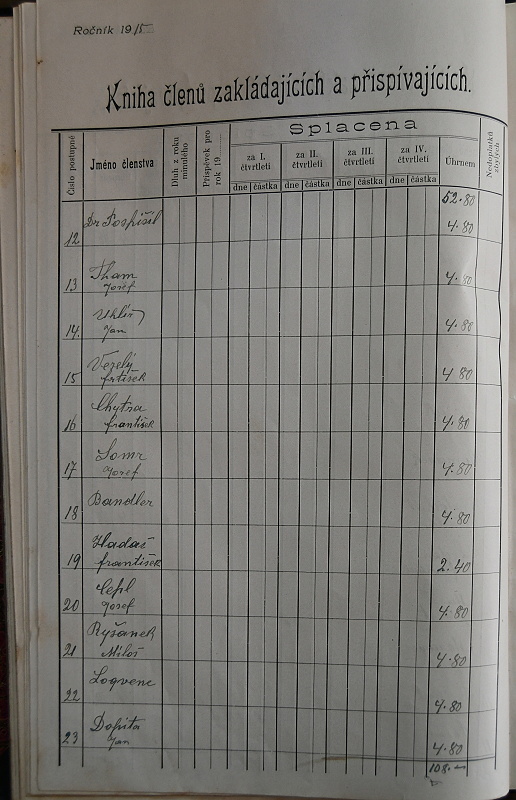 Ročník 19
Kniha členů zakládajících a přispívajících.
Číslo postupné
Jméno členstva
Dluh z roku minulého
Příspěvek pro rok 19
Splacena
za I. čtvrtletí
za II. čtvrtletí
za III. čtvrtletí
za IV. čtvrtletí
Úhrnem
Nedoplatků zbylých
dne částka dne částka dne částka dne částka
52.80
12 Dr Pospíšil 4.80
13 Tham Josef 4.80
14. Uhlíř Jan 4.80
15 Veselý frtišek 4.80
16 Chytra františek 4.80
17 Lomr Josef 4.80
18 Bandler 4.80
19 Hadaš františek 2.40
20 Cepl Josef 4.80
21 Ryšanek Miloš 4.80
22 4.80
23 Dopita Jan 4.80
108.—